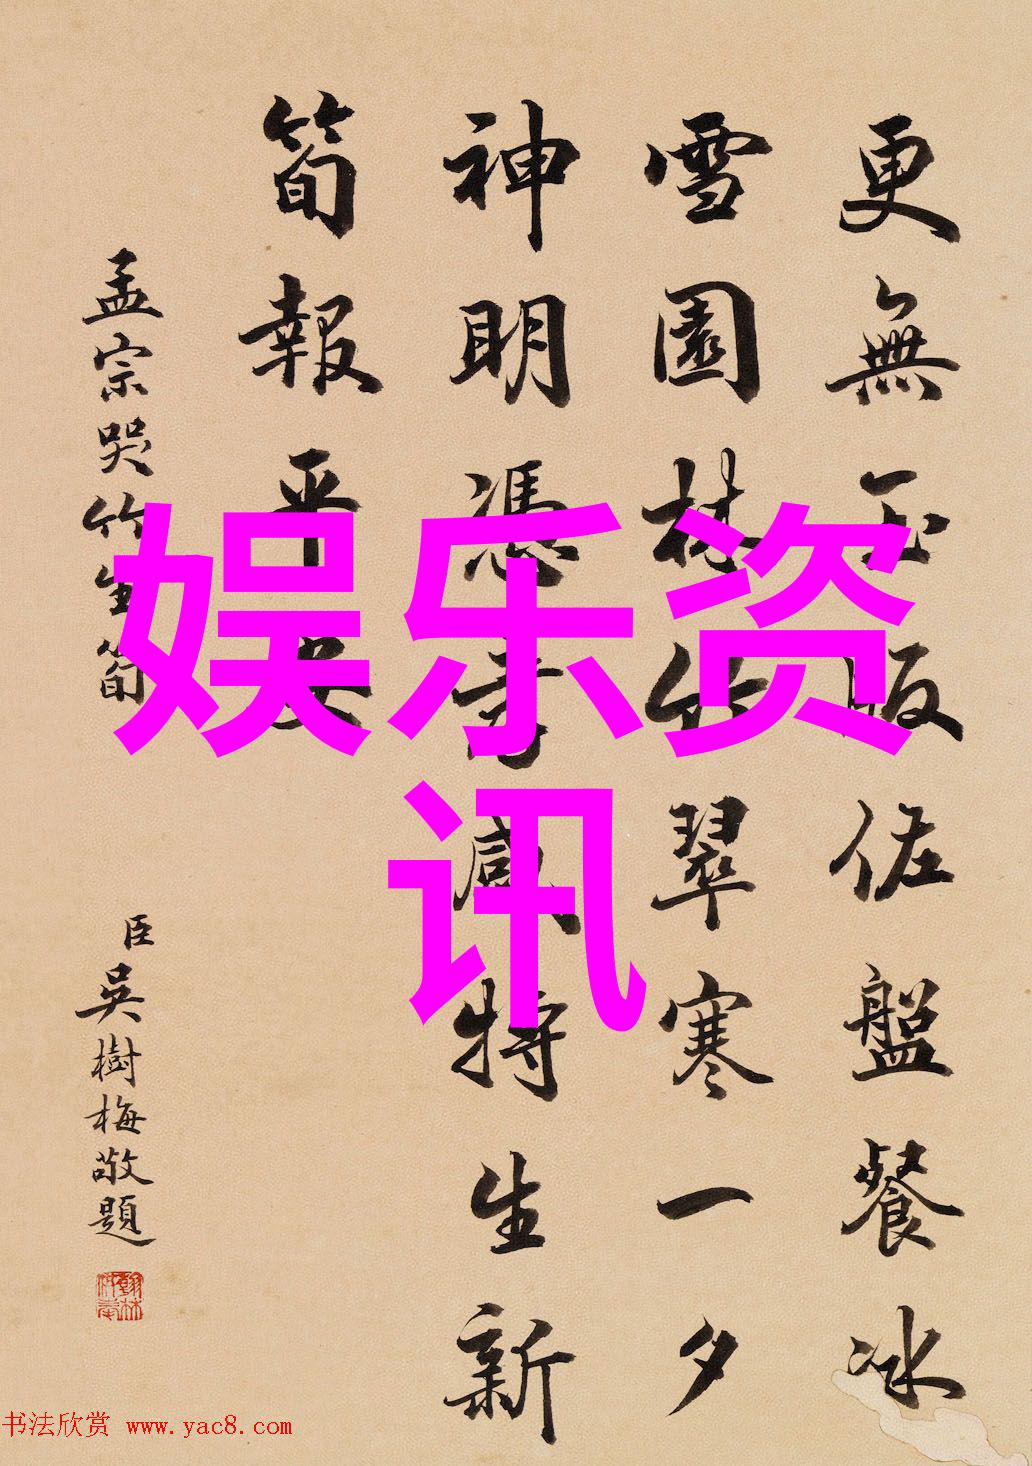 更無玉版佐盤餐冰
雪園林竹翠寒一夕
神明憑孝感特生新
筍報平安
孟宗哭竹生筍
臣吳樹梅敬題
娱乐资
讯
书法欣赏 www.yac8.com